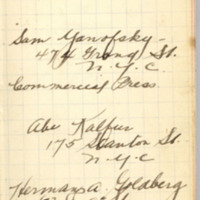 Sam Yanofsky -
474 Grand St.
N.Y.C.
Commercial Press.
Abe Kalfur
175 Stanton St.
N.Y.C
Herman A. Goldberg